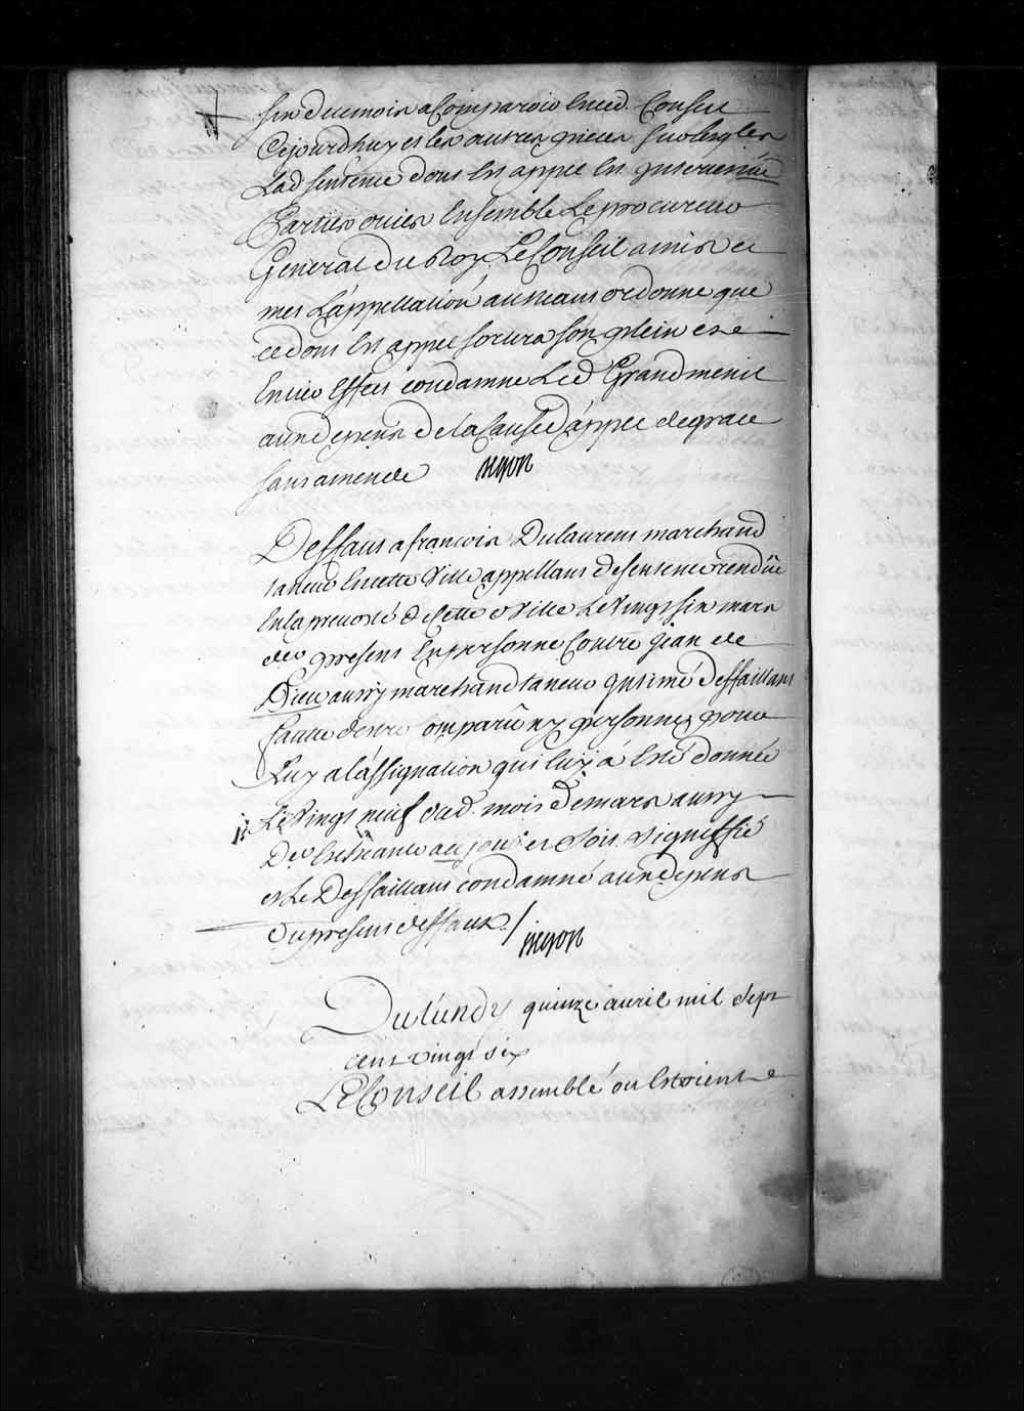 six du mois a Comparoir en ced. Conseil
Cejourdhuy et les autres pieces sur lesqles
Lad sentence dont est appel est intervenüe
Parties ouies Ensemble Le procureur
General du Roy Le Conseil a mis et
met L'appellation au neant ordonne que
ce dont est appel sortira son plein et
Entier Effet condamne Led Grandmenil
aux depens de la Cause d'appel de grace
sans amende
Deffaut a francois Dulaurent marchand
taneur en cette Ville appellant de sentence rendüe
En la prevosté de Cette Ville Le Vingt six mars
der present En personne Contre jean de
Dieu aussy marchand taneur Intimé Deffaillant
faute destre comparu ny personne pour
Luy a l'assignation qui luy a Esté donnée
Le Vingt neuf dud. mois de mars aussy
Der et Soit signiffié
et Le Deffaillant condamné aux depens
du present deffaut ./.
Du lundy quinze avril mil sept
cent vingt six
Le Conseil assemblé ou Estoient